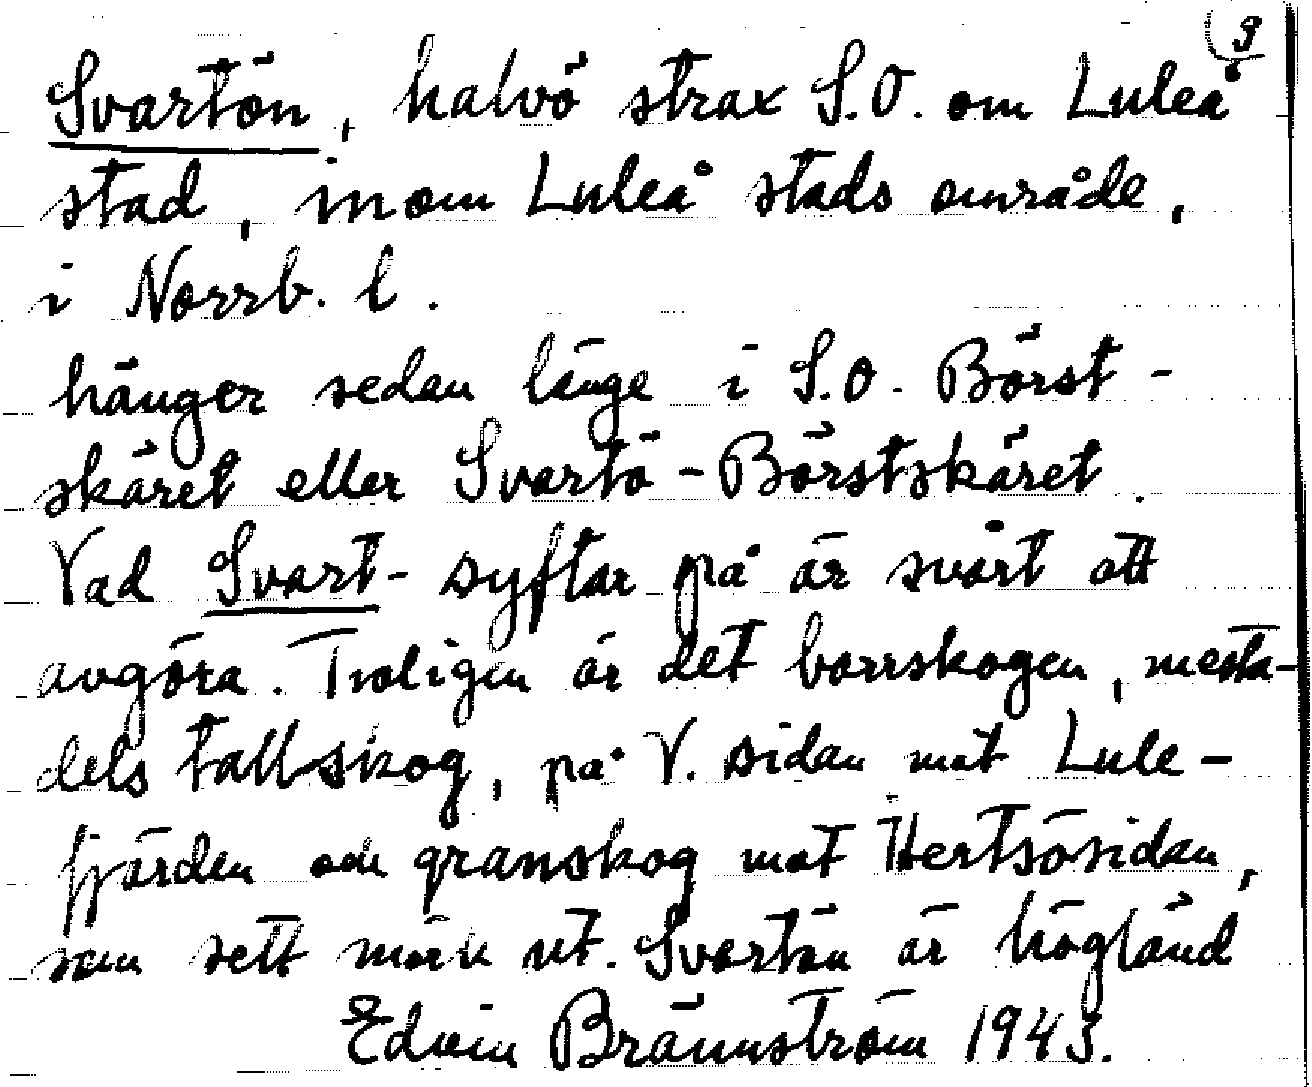 9
Svartön, halvö strax S.O. om Luleå
stad, inom Luleå stads område,
i Norrb. l.
hänger sedan länge i S.O. Börst-
skäret eller Svartö-Börstskäret.
Vad Svart- syftar på är svårt att
avgöra. Troligen är det barrskogen, mesta-
dels tallskog, på V. sidan mot Lule-
fjärden och granskog mot Hertsösidan,
som sett mörk ut. Svartön är högländ
Edvin Brännström 1943.